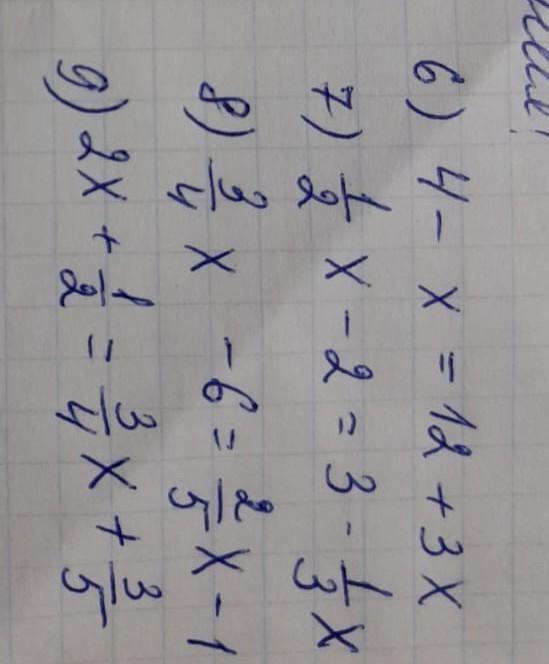 6) 4 - x = 12 + 3x
7) 1/2 x - 2 = 3 - 1/3 x
8) 3/4 x - 6 = 2/5 x - 1
9) 2x + 1/2 = 3/4 x + 3/5